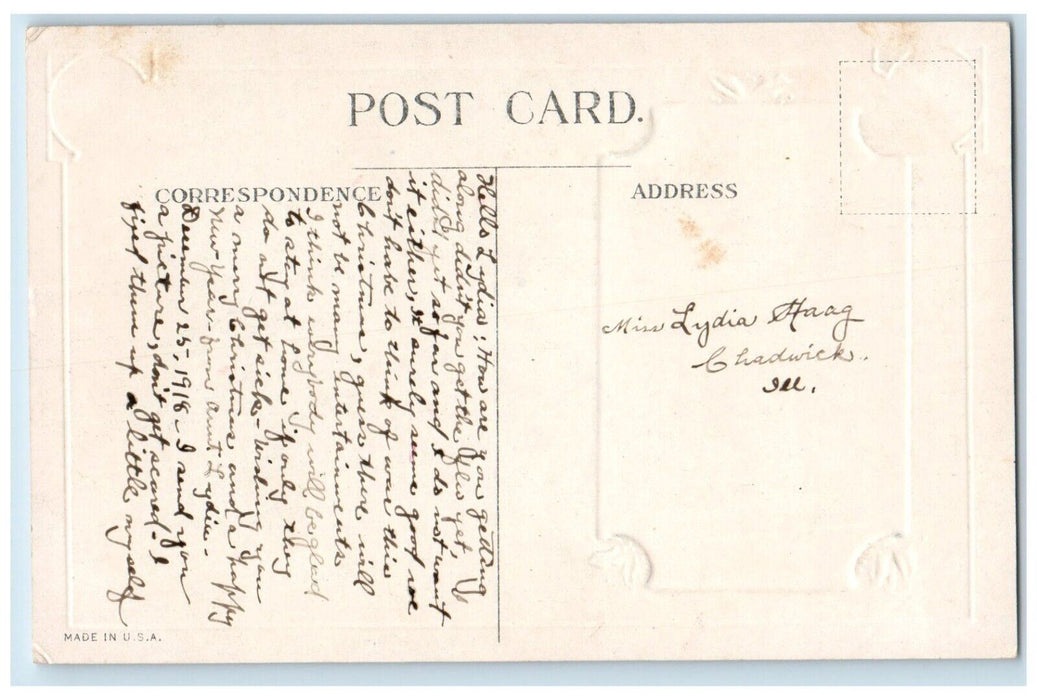 POST CARD.
CORRESPONDENCE
ADDRESS
Hello Lydia; How are you getting
along didn't you get the flu yet, I
didn't yet so far and I do not want
it either, It surely seems good we
don't have to think of war this
Christmas, guess there will
not be many entertainments
I think everybody will be glad
to stay at home if only they
do not get sick - Wishing you
a merry Christmas and a happy
New Year - from aunt Lydia -
December 25, 1918 - I send you
a picture, don't get scared - I
fixed them up a little myself
Miss Lydia Haag
Chadwick.
Ill.
MADE IN U.S.A.